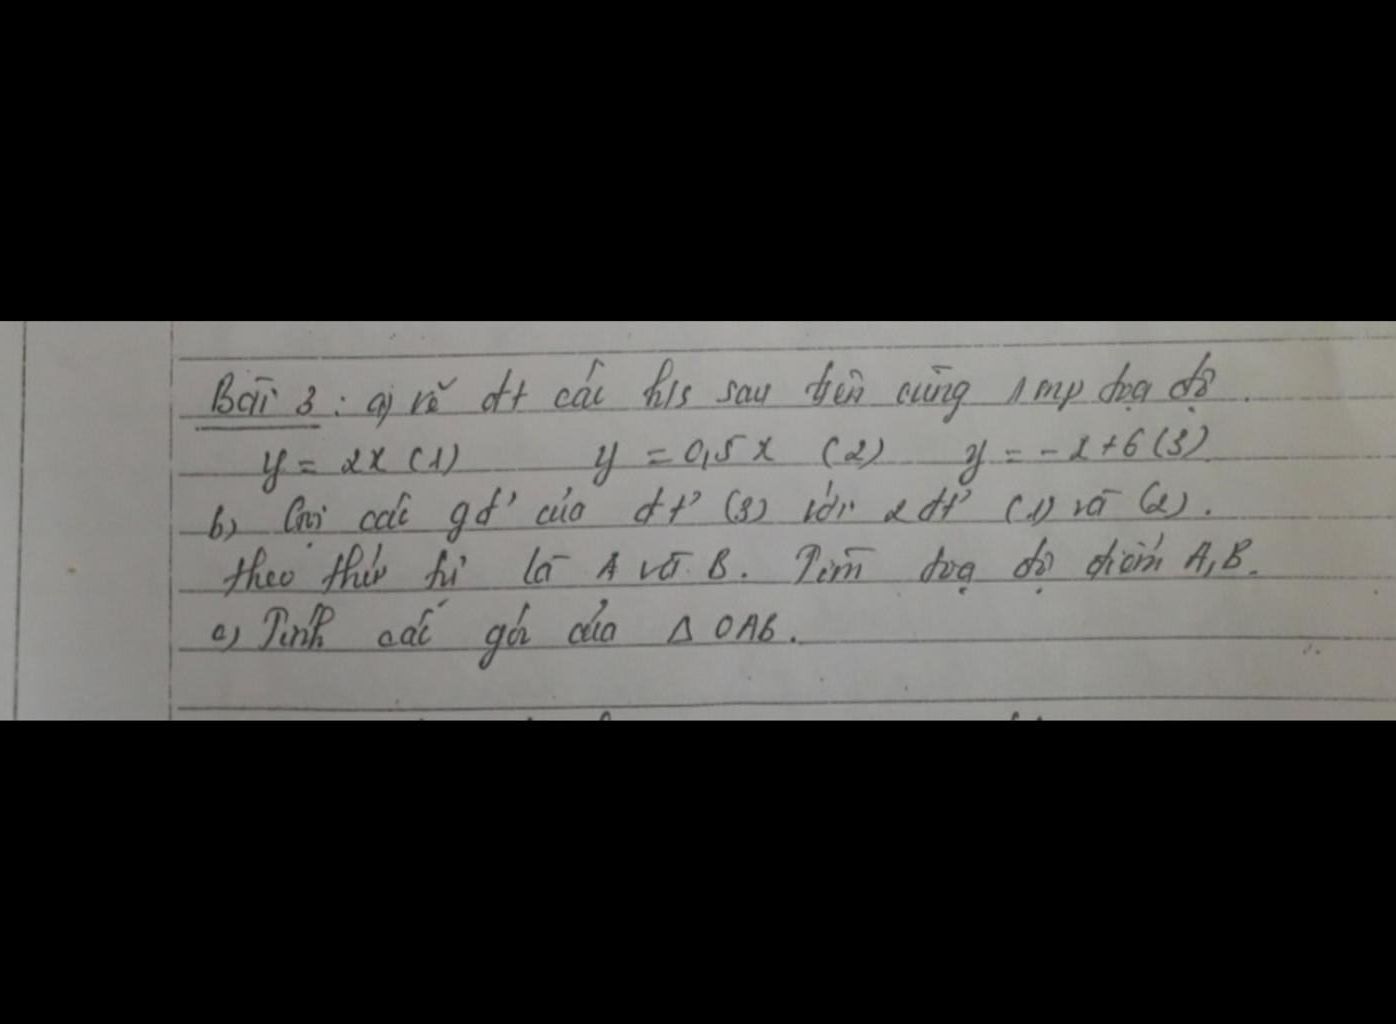 Bài 3: a) vẽ đt các h/s sau trên cùng 1 mp tọa độ.
y = 2x (1) y = 0,5x (2) y = -x+6 (3)
b) Gọi các gđ' của đt' (3) với 2 đt' (1) và (2).
theo thứ tự là A và B. Tìm tọa độ điểm A, B.
c) Tính các góc của Δ OAB.